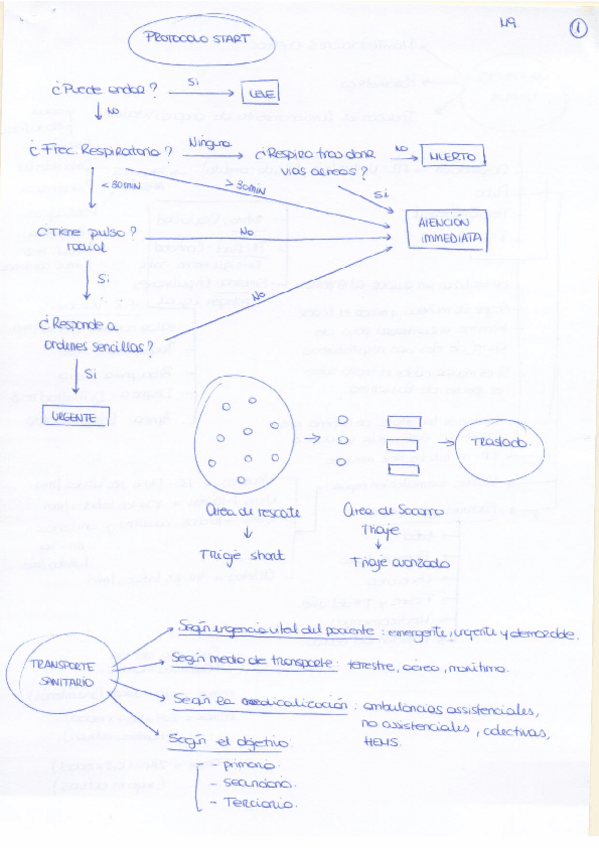 49.
1
PROTOCOLO START
¿Puede andar? Si LEVE
NO
¿Frec. Respiratoria? Ninguna ¿Respira tras abrir NO MUERTO
vias aereas?
< 30min ≥ 30min Si
¿Tiene pulso? No ATENCIÓN
radial INMEDIATA
Si
No
¿Responde a
ordenes sencillas?
Si
URGENTE
TRASLADO.
Area de rescate Area de Socorro
Triaje
Triaje short Triaje avanzado
Según urgencia vital del paciente: emergente, urgente y demorable.
TRANSPORTE
SANITARIO
Según medio de transporte: terrestre, aéreo, marítimo.
Según la medicalización: ambulancias assistenciales,
no assistenciales, colectivas,
HEMS.
Según el objetivo
- primario.
- secundario.
- Terciario.